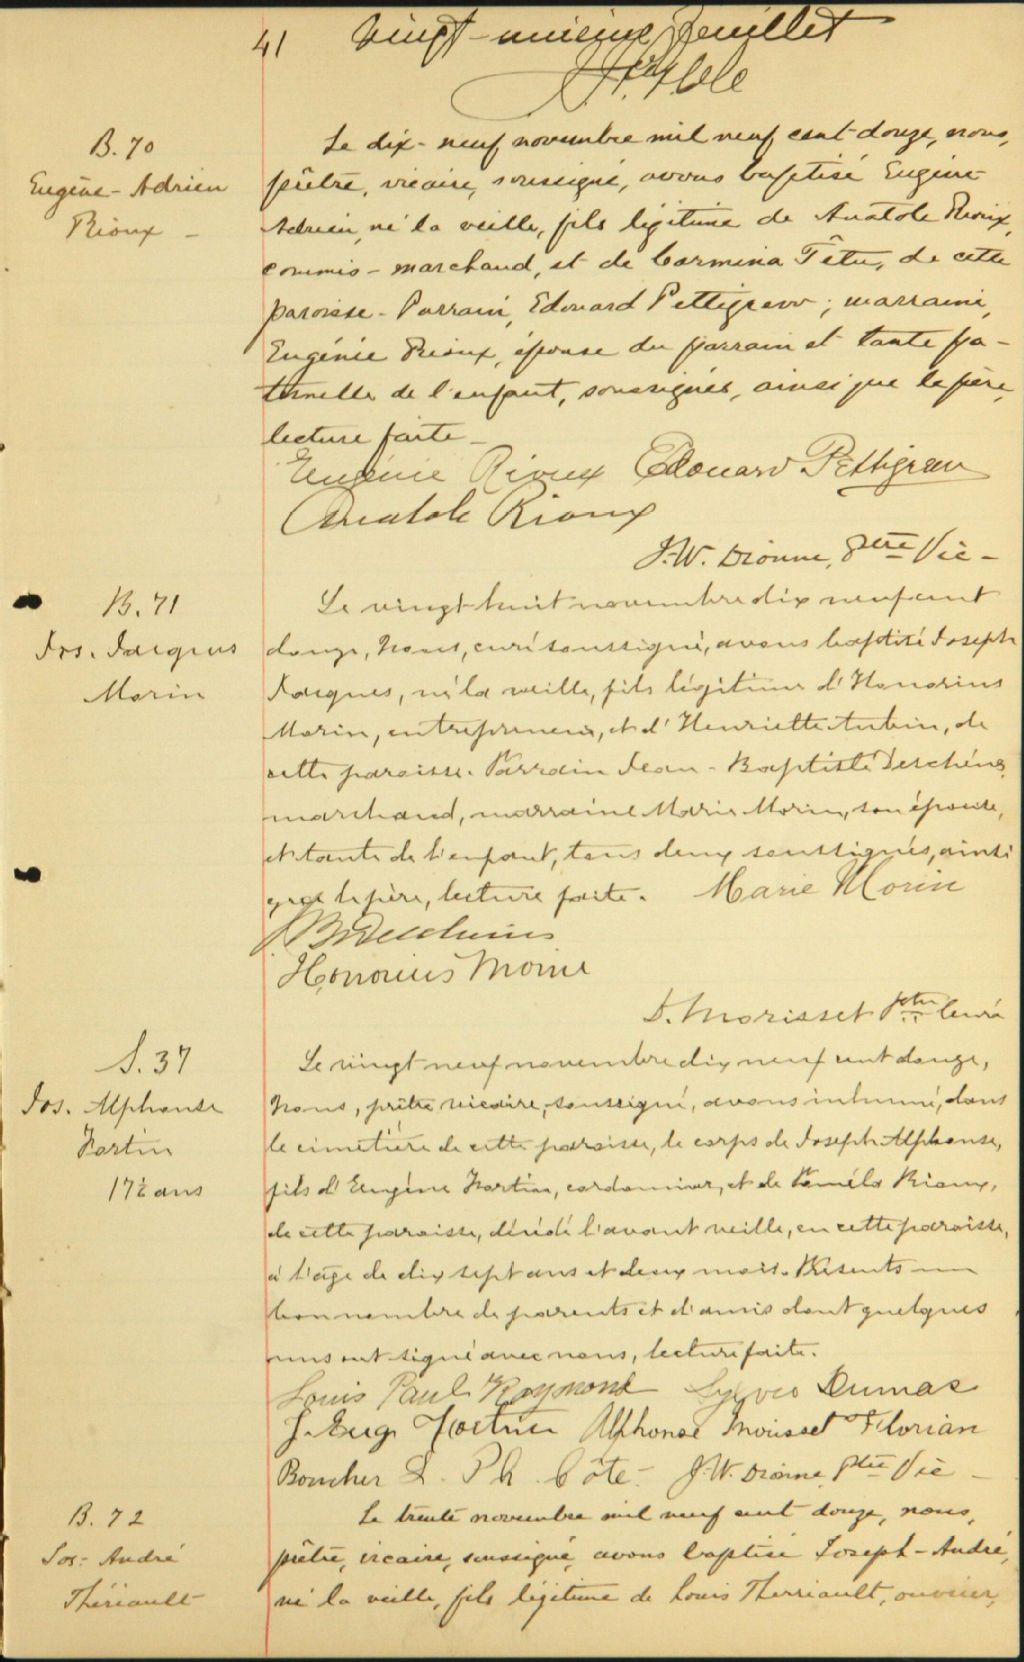 41 Vingt-unième feuillet
B. 70
Eugène-Adrien
Rioux -
Le dix-neuf novembre mil neuf cent douze, nous,
prêtre, vicaire, soussigné, avons baptisé Eugène-
Adrien, né la veille, fils légitime de Anatole Rioux,
commis-marchand, et de Carmina Têtu, de cette
paroisse. Parrain, Edouard Pettigrew; marraine,
Eugénie Rioux, épouse du parrain et tante pa-
ternelle de l'enfant, soussignés, ainsi que le père,
lecture faite -
Eugénie Rioux Edouard Pettigrew
Anatole Rioux
J.W. Dionne, Ptre Vic -
B. 71
Jos. Jacques
Morin
Le vingt huit novembre dix neuf cent
douze, Nous, curé soussigné, avons baptisé Joseph
Jacques, né la veille, fils légitime d'Honorius
Morin, entrepreneur, et d'Henriette Aubin, de
cette paroisse. Parrain Jean-Baptiste Deschênes,
marchand, marraine Marie Morin, son épouse,
et tante de l'enfant, tous deux soussignés, ainsi
que le père, lecture faite. Marie Morin
JBDeschênes
Honorius Morin
D. Morisset Ptre Curé
S. 37
Jos. Alphonse
Fortin
17½ ans
Le vingt neuf novembre dix neuf cent douze,
Nous, prêtre vicaire, soussigné, avons inhumé, dans
le cimetière de cette paroisse, le corps de Joseph Alphonse,
fils d'Eugène Fortin, cordonnier, et de Paméla Rioux,
de cette paroisse, décédé l'avant veille, en cette paroisse,
à l'âge de dix sept ans et deux mois. Présents un
bon nombre de parents et d'amis dont quelques
uns ont signé avec nous, lecture faite.
Louis Paul Raymond Sylvio Dumas
J. Eug. Fortin Alphonse Morisset Florian
Boucher L. Ph. Côté - J.W. Dionne Ptre Vic -
B. 72
Jos:- André
Thériault
Le trente novembre mil neuf cent douze, nous,
prêtre, vicaire, soussigné, avons baptisé Joseph-André,
né la veille, fils légitime de Louis Therriault, ouvrier,